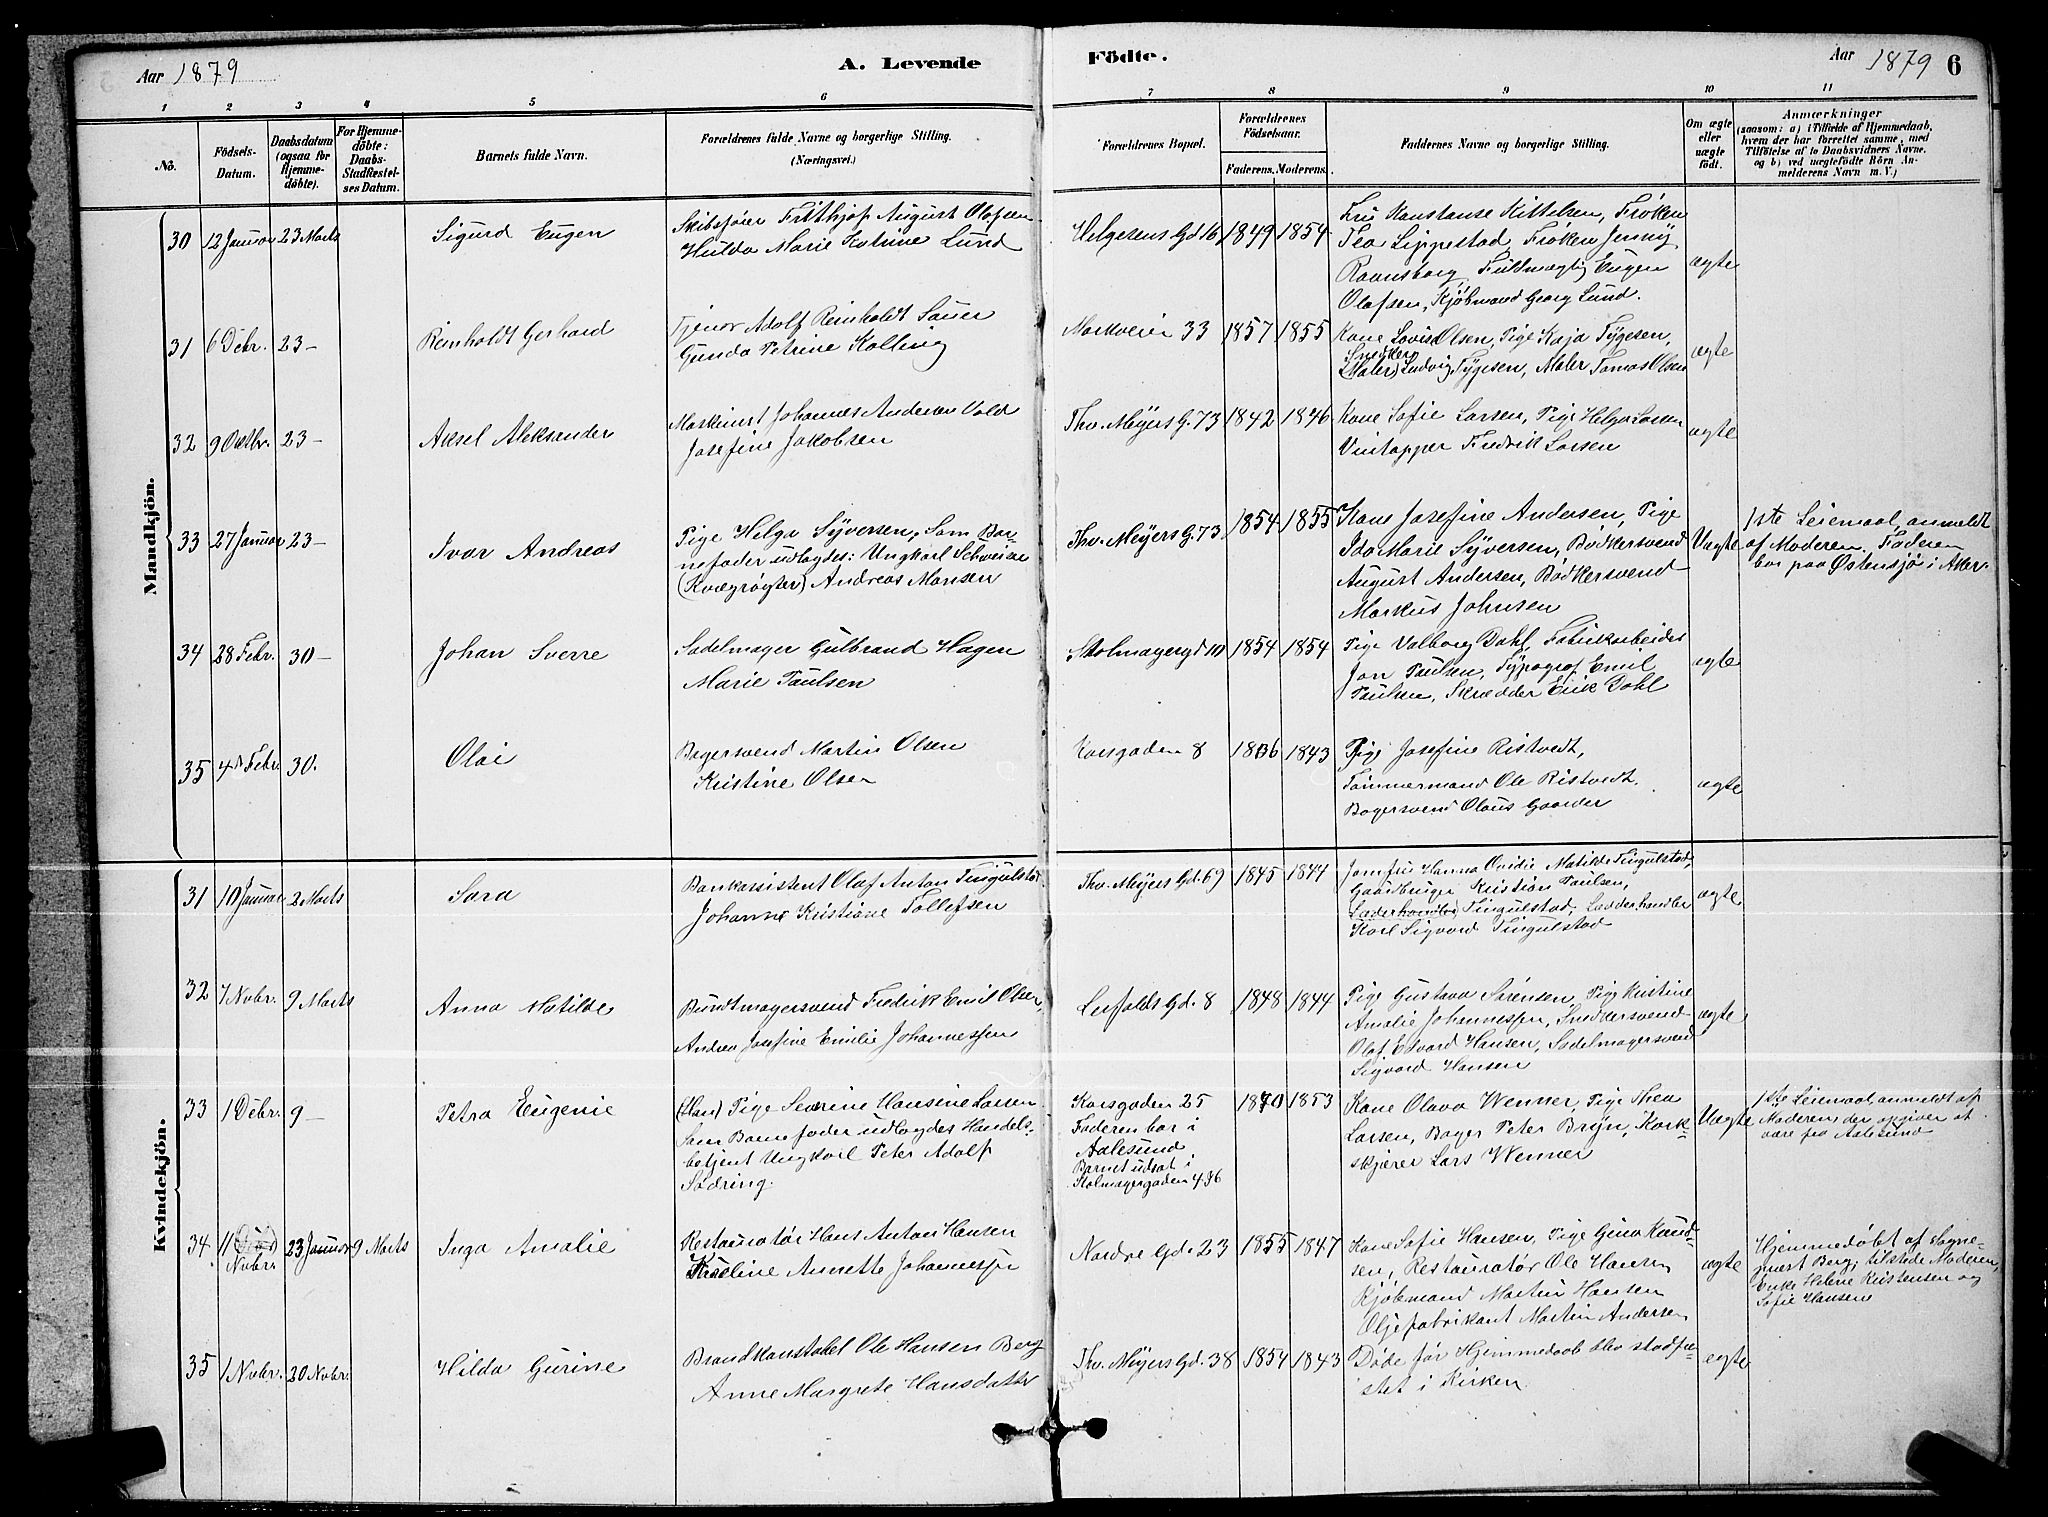 Aar 1879
A. Levende
Födte.
Aar 1879 6
1 2 3 4 5 6 7 8 9 10 11
No.
Födsels-
Datum.
Daabsdatum
(ogsaa for
Hjemme-
döbte).
For Hjemme-
döbte:
Daabs-
Stadfæstel-
ses Datum.
Barnets fulde Navn.
Forældrenes fulde Navne og borgerlige Stilling.
(Næringsvei.)
Forældrenes Bopæl.
Forældrenes
Födselsaar.
Faderens. Moderens.
Faddernes Navne og borgerlige Stilling.
Om ægte
eller
uægte
födt.
Anmærkninger
(saasom: a) i Tilfælde af Hjemmedaab,
hvem der har forrettet samme, med
Tilföielse af to Daabsvidners Navne,
og b) ved uægtefödte Börn An-
melderens Navn m. V.)
Mandkjön.
30 12 Januar 23 Marts Sigurd Eugen
Skibsfører Frithjof August Olafsen
Hulda Marie Katrine Lund
Helgesens Gd 16 1849 1854
Fru Konstanse Kittelsen, Frøken
Tea Lippestad, Frøken Jenny
Ravnsborg, Fuldmægtig Eugen
Olafsen, Kjøbmand Georg Lund.
ægte
31 6 Debr. 23 — Reinholdt Gerhard
Tjener Adolf Reinholdt Sauer
Gunda Petrine Kolling
Markveien 33 1857 1855
Kone Lovise Olsen, Pige Kaja Tygesen,
Snedker
(Maler) Ludvig Tygesen, Maler Tomas Olsen
ægte
32 9 Oktbr. 23 — Aksel Aleksander
Maskinist Johannes Andersen Vold
Josefine Jakobsen
Thv. Meyers G. 73 1842 1846
Kone Sofie Larsen, Pige Helga Larsen
Vintapper Fredrik Larsen
ægte
33 27 Januar 23 — Ivar Andreas
Pige Helga Syversen, Som Bar-
nefader udlagdes: Ungkarl Schweizer
(Kvægrøgter) Andreas Mansen
Thv. Meyers G. 73 1854 1855
Kone Josefine Andersen, Pige
Ida Marie Syversen, Bødkersvend
August Andersen, Bødkersvend
Markus Johnsen
Uægte
1ste Leiemaal, anmeldt
af Moderen. Faderen
bor paa Østensjø i Aker.
34 28 Febr. 30 — Johan Sverre
Sadelmager Gulbrand Hagen
Marie Paulsen
Stolmagergd 10 1854 1854
Pige Valborg Dahl, Fabrikarbeider
Jon Paulsen, Typograf Emil
Paulsen, Skrædder Erik Dahl
ægte
35 4 Febr. 30. Olai
Bagersvend Martin Olsen
Kristine Olsen
Korsgaden 8 1836 1843
Pige Josefine Ristvedt,
Tømmermand Ole Ristvedt.
Bagersvend Olaus Gaarder
ægte
Kvindekjön.
31 10 Januar 2 Marts Sara
Bankassistent Olaf Anton Tingulstad
Johanne Kristiane Tollefsen
Thv. Meyers Gd. 69 1845 1844
Jomfru Hanna Ovidie Matilde Tingulstad,
Gaardbruger Kristian Paulsen,
Læderhandler Tingulstad, Læderhandler
Karl Sigvard Tingulstad
ægte
32 7 Nvbr. 9 Marts Anna Matilde
Bundtmagersvend Fredrik Emil Olsen,
Andrea Josefine Emilie Johannessen
Leufolds Gd. 8 1848 1844
Pige Gustava Sørensen, Pige Kristine
Amalie Johannessen, Snedkersvend
Olaf Edvard Hansen, Sadelmagersvend
Sigvard Hansen
ægte
33 1 Debr. 9 — Petra Eugenie
(Han) Pige Severine Hansine Larsen
Som Barnefader udlagdes Handels-
betjent Ungkarl Peter Adolf
Sødring.
Korsgaden 25
Faderen bor i
Aalesund
Barnet udsat i
Stolmagergaden 4.36
1853
Kone Olava Wenner, Pige Thea
Larsen, Bager Peter Bryn, Kork-
skjærer Lars Wenner
Uægte
1ste Leiemaal, anmeldt af
Moderen der opgiver at
være fra Aalesund
34 11 Nvbr. 23 Januar 9 Marts Inga Amalie
Restauratør Hans Anton Hansen
Karoline Annette Johannessen
Nordre Gd. 23 1855 1847
Kone Sofie Hansen, Pige Gina Knud-
sen, Restauratør Ole Hansen
Kjøbmand Martin Hansen
Oljefabrikant Martin Andersen
ægte
Hjemmedøbt af Sogne-
præst Berg; tilstede Moderen,
Enke Helene Kristensen og
Sofie Hansen
35 1 Nvbr. 20 Nvbr. Hilda Gurine
Brandkonstabel Ole Hansen Berg
Anne Margrete Hansdatter
Thv. Meyers Gd. 38 1854 1843
Døde før Hjemmedaab blev stadfæ-
stet i Kirken
ægte